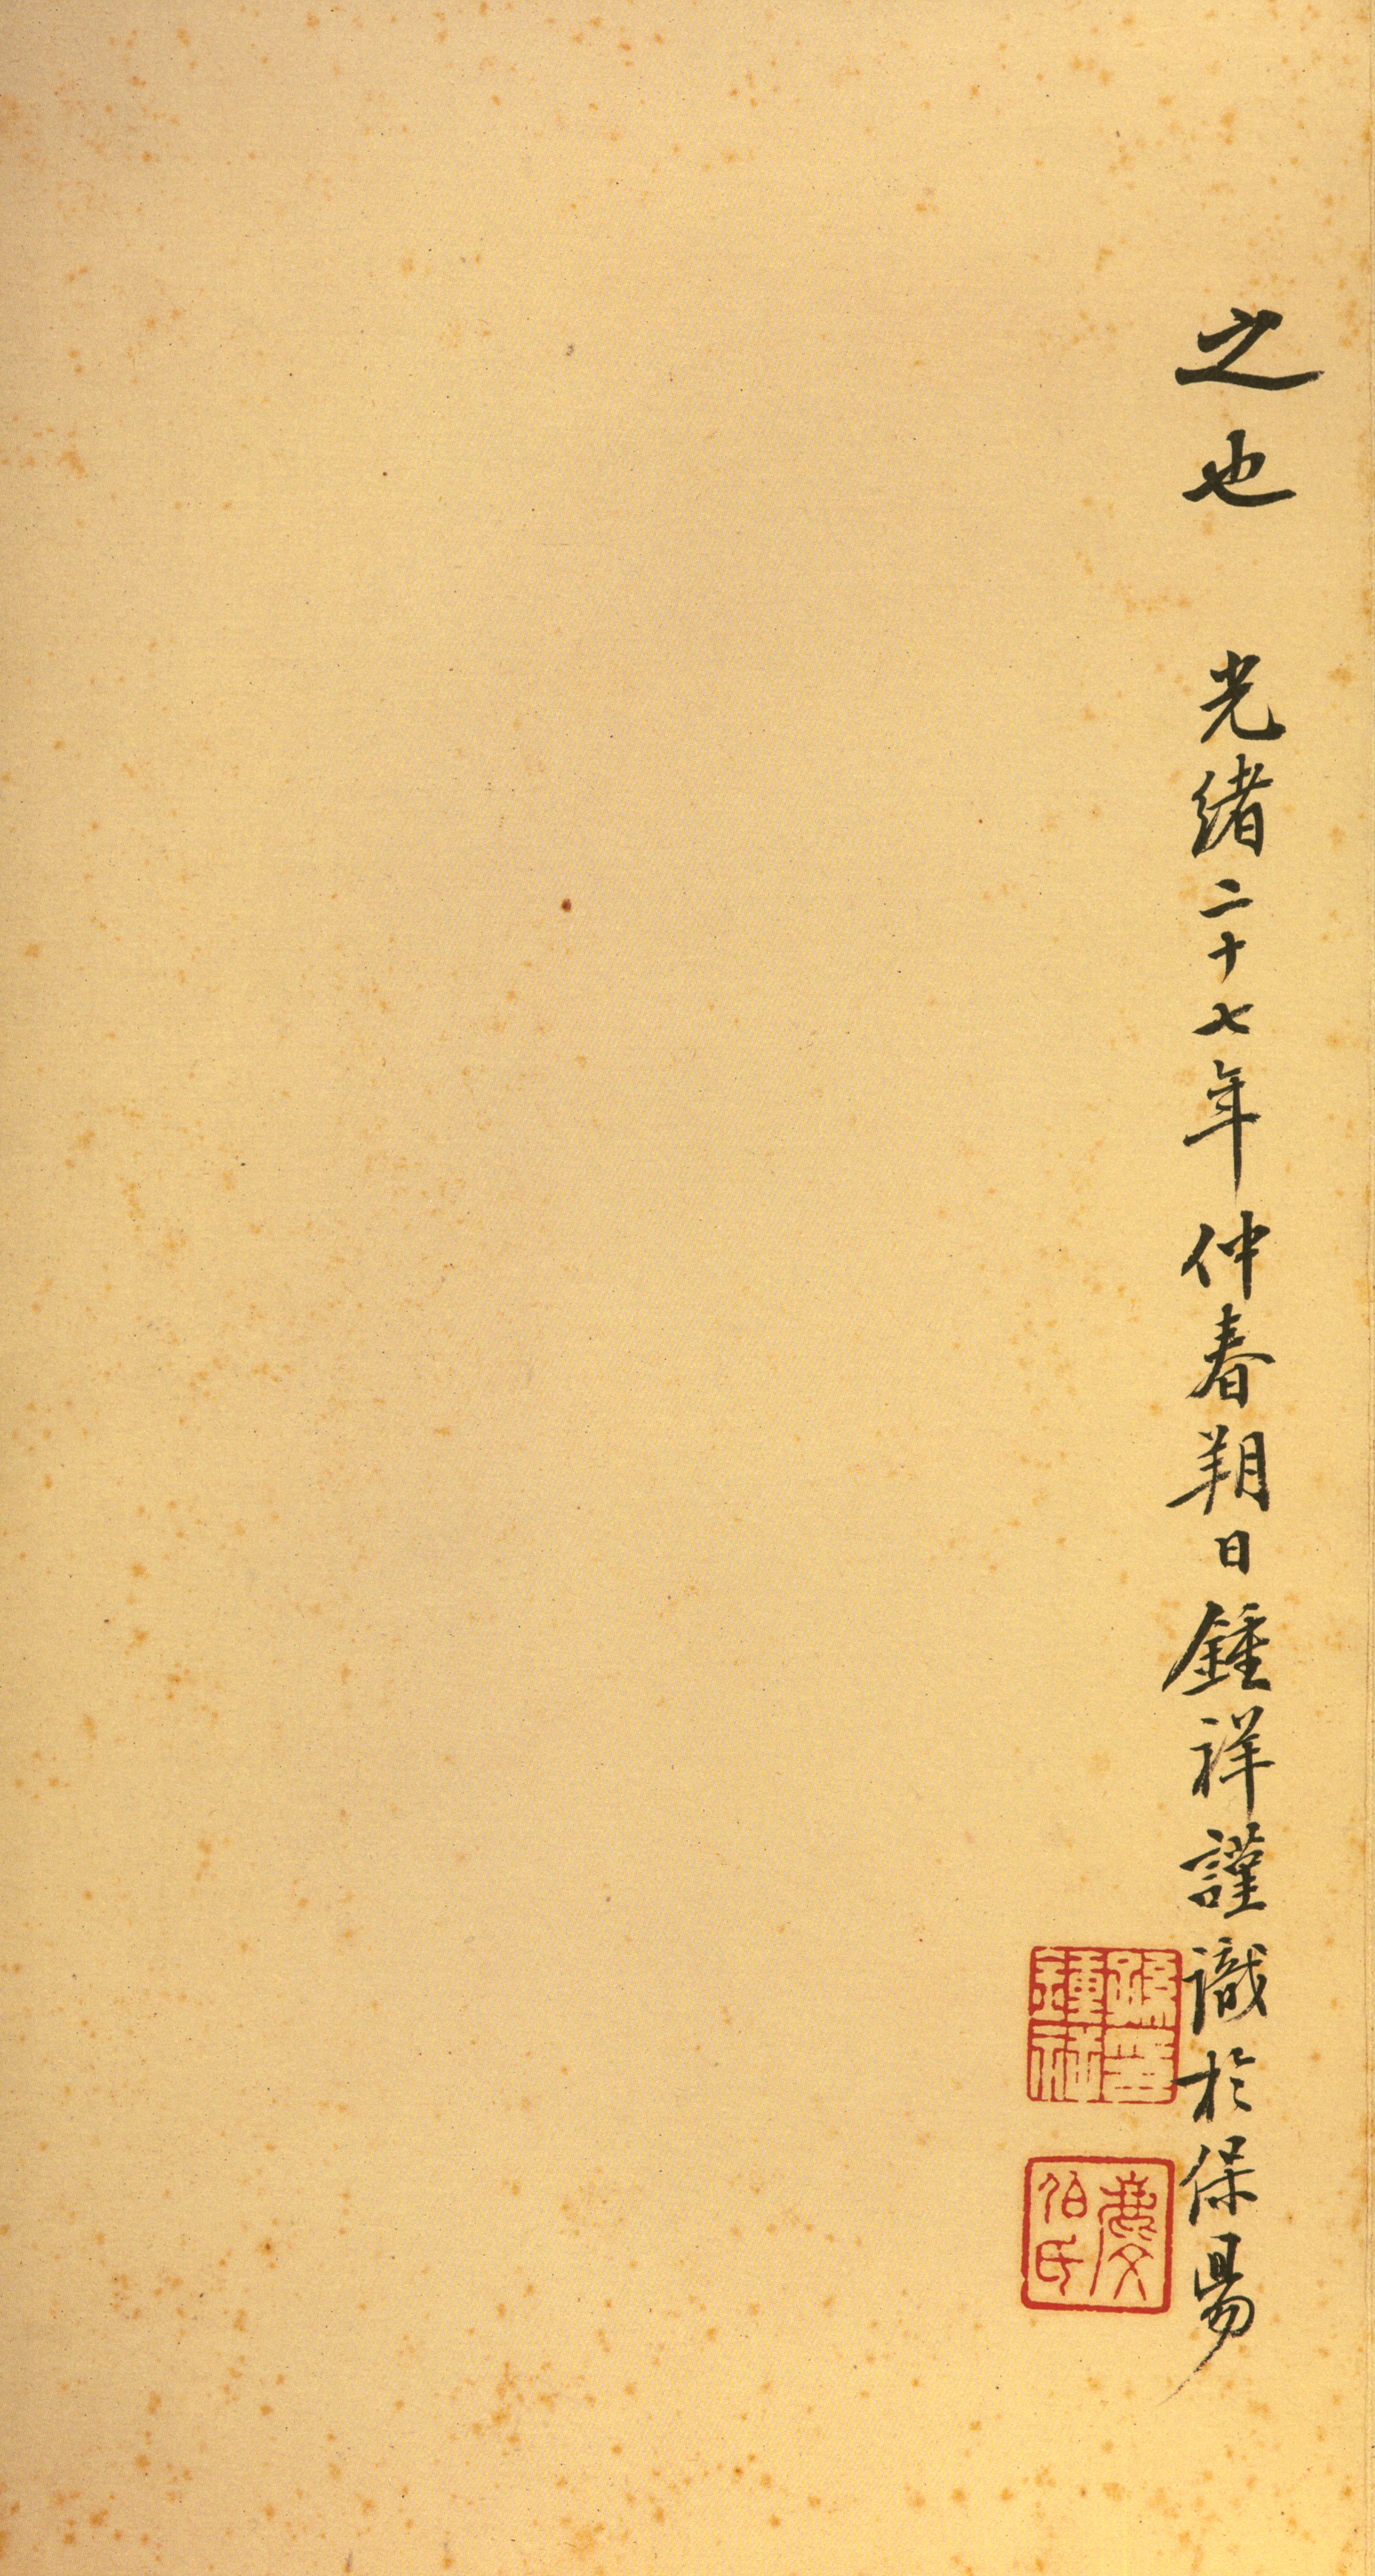 之也 光緒二十七年仲春朔日鍾祥謹識於保昜
鍾祥
慶伯氏